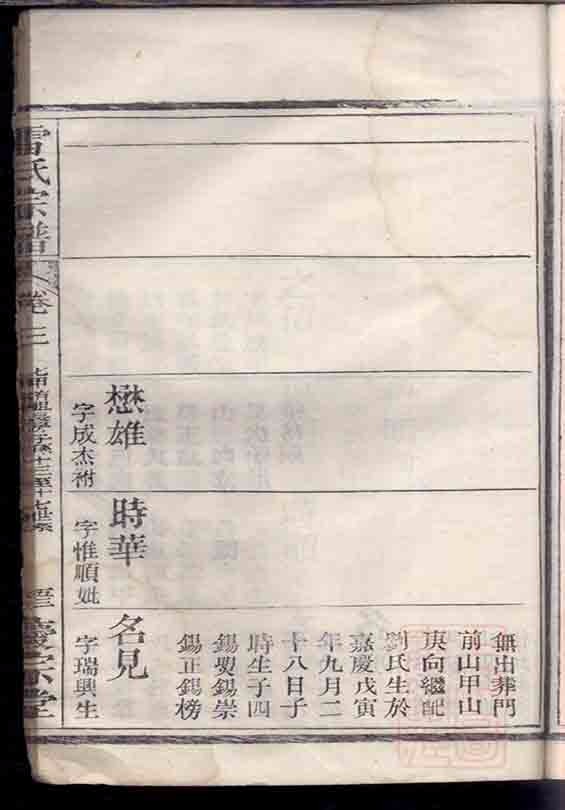 無出葬門
前山甲山
庚向繼配
劉氏生於
嘉慶戊寅
年九月二
十八日子
時生子四
錫㷼錫崇
錫正錫榜
懋雄
字成杰祔
時華
字惟順妣
名見
字瑞興生
雷氏宗譜
卷三